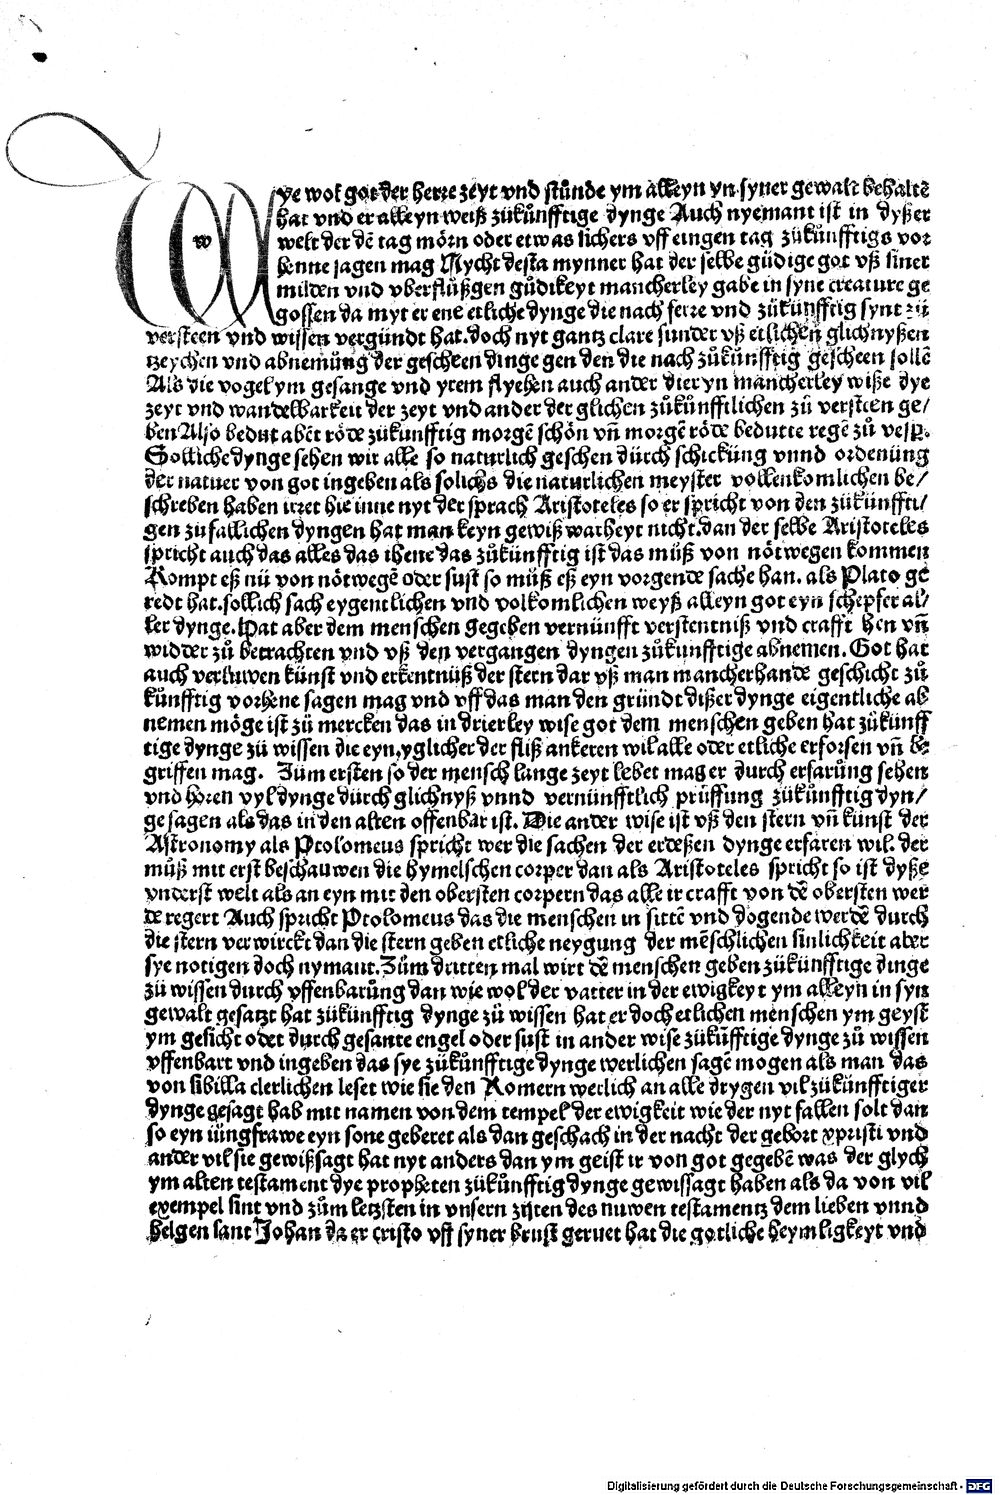 Wye wol got der herre zeyt vnd stůnde ym alleyn yn syner gewalt behaltē
hat vnd er alleyn weiß zůkůnfftige dynge Auch nyemant ist in dyßer
welt der dē tag mörn oder etwas sichers vff eingen tag zůkůnfftigs vor
henne sagen mag Nycht desta mynner hat der selbe gůdige got vß siner
milden vnd vberflůßgen gůdikeyt mancherley gabe in syne creature ge
gossen da myt er ene etliche dynge die nach ferre vnd zůkůnfftig synt zů
versteen vnd wissen vergůndt hat. doch nyt gantz clare sunder vß etlichen glichnyßen
tzeychen vnd abnemůng der gescheen dinge gen den die nach zůkůnfftig gescheen sollē
Als die vogel ym gesange vnd ytem flyehen auch ander dier yn mancherley wiße dye
zeyt vnd wandelbarkeit der zeyt vnd ander der glichen zůkůnfftlichen zů versteen ge/
ben Also bedut abēt röde zůkunfftig morgē schön vñ morgē röde bedutte regē zů vesp.
Solliche dynge sehen wir alle so naturlich geschen důrch schickůng vnnd ordenůng
der natuer von got ingeben als solichs die naturlichen meyster vollenkomlichen be/
schreben haben irret hie inne nyt der sprach Aristoteles so er spricht von den zůkůnffti/
gen zufallichen dyngen hat man keyn gewiß warheyt nicht. dan der selbe Aristoteles
spricht auch das alles das ihene das zůkůnfftig ist das můß von nötwegen kommen
Kompt eß nů von nötwegē oder sust so můß eß eyn vorgende sache han. als Plato ge
redt hat. sollich sach eygentlichen vnd volkomlichen weyß alleyn got eyn schepfer al/
ler dynge. Hat aber dem menschen gegeben vernůnfft verstentniß vnd crafft hen vñ
widder zů betrachten vnd vß den vergangen dyngen zůkunfftige abnemen. Got hat
auch verluwen kůnst vnd erkentnůß der stern dar vß man mancherhande geschicht zů
kůnfftig vorhene sagen mag vnd vff das man den grůndt dißer dynge eigentliche ab
nemen möge ist zů mercken das in drierley wise got dem menschen geben hat zůkůnff
tige dynge zů wissen die eyn yglicher der fliß ankeren wil alle oder etliche erforsen vñ be
griffen mag. Zům ersten so der mensch lange zeyt lebet mag er durch erfarůng sehen
vnd hören vyl dynge důrch glichnyß vnnd vernůnfftlich průffung zůkůnfftig dyn/
ge sagen als das in den alten offenbar ist. Die ander wise ist vß den stern vñ kůnst der
Astronomy als Ptolomeus spricht wer die sachen der erdeßen dynge erfaren wil. der
můß mit erst beschauwen die hymelschen corper dan als Aristoteles spricht so ist dyße
vnderst welt als an eyn mit den obersten corpern das alle ir crafft von dē obersten wer
de regert Auch spricht Ptolomeus das die menschen in sittē vnd dogende werdē durch
die stern verwirckt dan die stern geben etliche neygung der mēschlichen sinlichkeit aber
sye notigen doch nymant. Zům dritten mal wirt dē menschen geben zůkůnfftige dinge
zů wissen durch vffenbarůng dan wie wol der vatter in der ewigkeyt ym alleyn in syn
gewalt gesatzt hat zůkůnfftig dynge zů wissen hat er doch etlichen menschen ym geyst
ym gesicht oder durch gesante engel oder sust in ander wise zůkůnfftige dynge zů wissen
vffenbart vnd ingeben das sye zůkůnfftige dynge werlichen sagē mogen als man das
von sibilla clerlichen leset wie sie den Romern werlich an alle drygen vil zůkůnfftiger
dynge gesagt hab mit namen von dem tempel der ewigkeit wie der nyt fallen solt dan
so eyn iůngfrawe eyn sone geberet als dan geschach in der nacht der gebort xpristi vnd
ander vil sie gewißsagt hat nyt anders dan ym geist ir von got gegebē was der glych
ym alten testament dye propheten zůkůnfftig dynge gewissagt haben als da von vil
exempel sint vnd zům letzsten in vnsern zijten des nuwen testamentz dem lieben vnnd
helgen sant Johan da er cristo vff syner brust geruet hat die gotliche heymligkeyt vnd
Digitalisierung gefördert durch die Deutsche Forschungsgemeinschaft - DFG